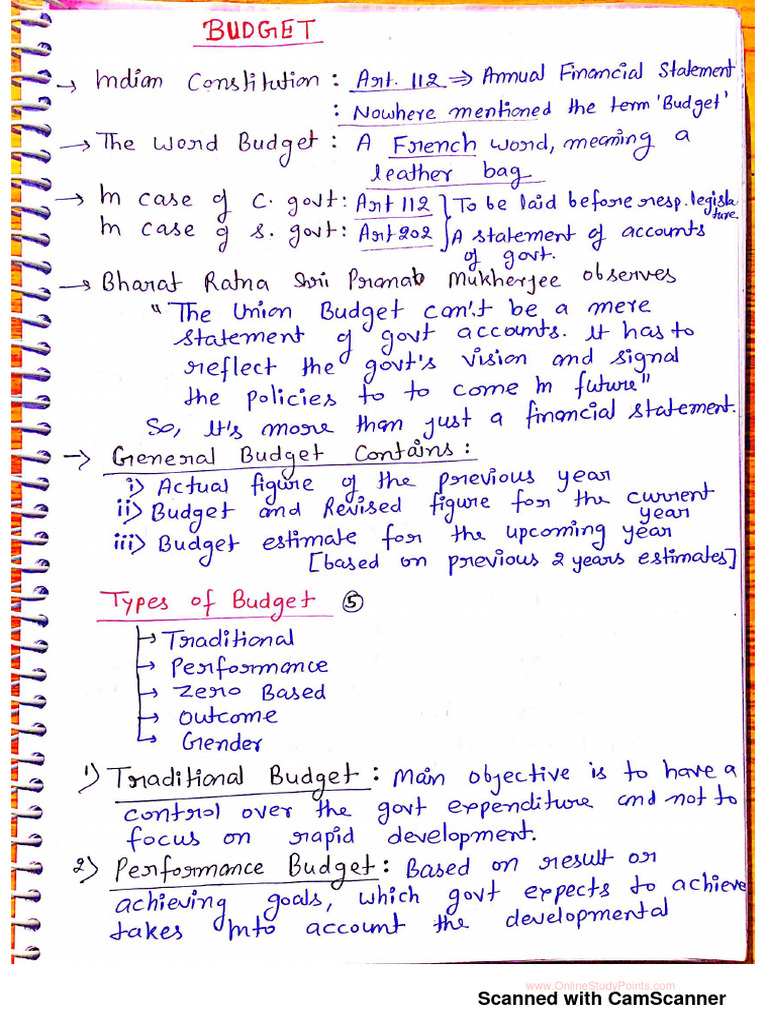 BUDGET
→ Indian Constitution : Art. 112 ⇒ Annual Financial Statement
: Nowhere mentioned the term 'Budget'
→ The Word Budget : A French word, meaning a
leather bag
→ In case of C. govt : Art 112 } To be laid before resp. legisla
ture.
In case of S. govt : Art 202 } A statement of accounts
of govt.
→ Bharat Ratna Shri Pranab Mukherjee observes
"The Union Budget can't be a mere
statement of govt accounts. It has to
reflect the govt's vision and signal
the policies to to come in future"
So, It's more than just a financial statement.
→ General Budget Contains :
i) Actual figure of the previous year
ii) Budget and Revised figure for the current
year
iii) Budget estimate for the upcoming year
[based on previous 2 years estimates]
Types of Budget ⑤
→ Traditional
→ Performance
→ Zero Based
→ Outcome
→ Gender
1) Traditional Budget : Main objective is to have a
control over the govt expenditure and not to
focus on rapid development.
2) Performance Budget : Based on result or
achieving goals, which govt expects to achieve
takes into account the developmental
www.OnlineStudyPoints.com
Scanned with CamScanner